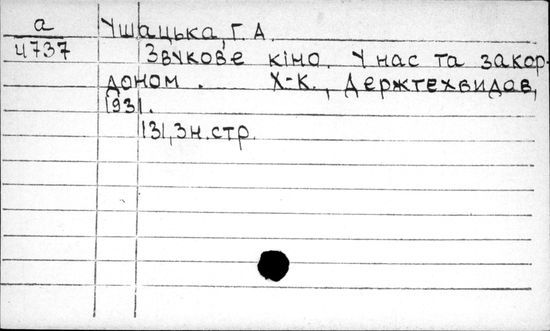 а
4737
Ушацька, Г. А.
Звукове кіно. У нас та закор-
доном. Х-К., Держтехвидав,
1931.
131, 3 н. стр.